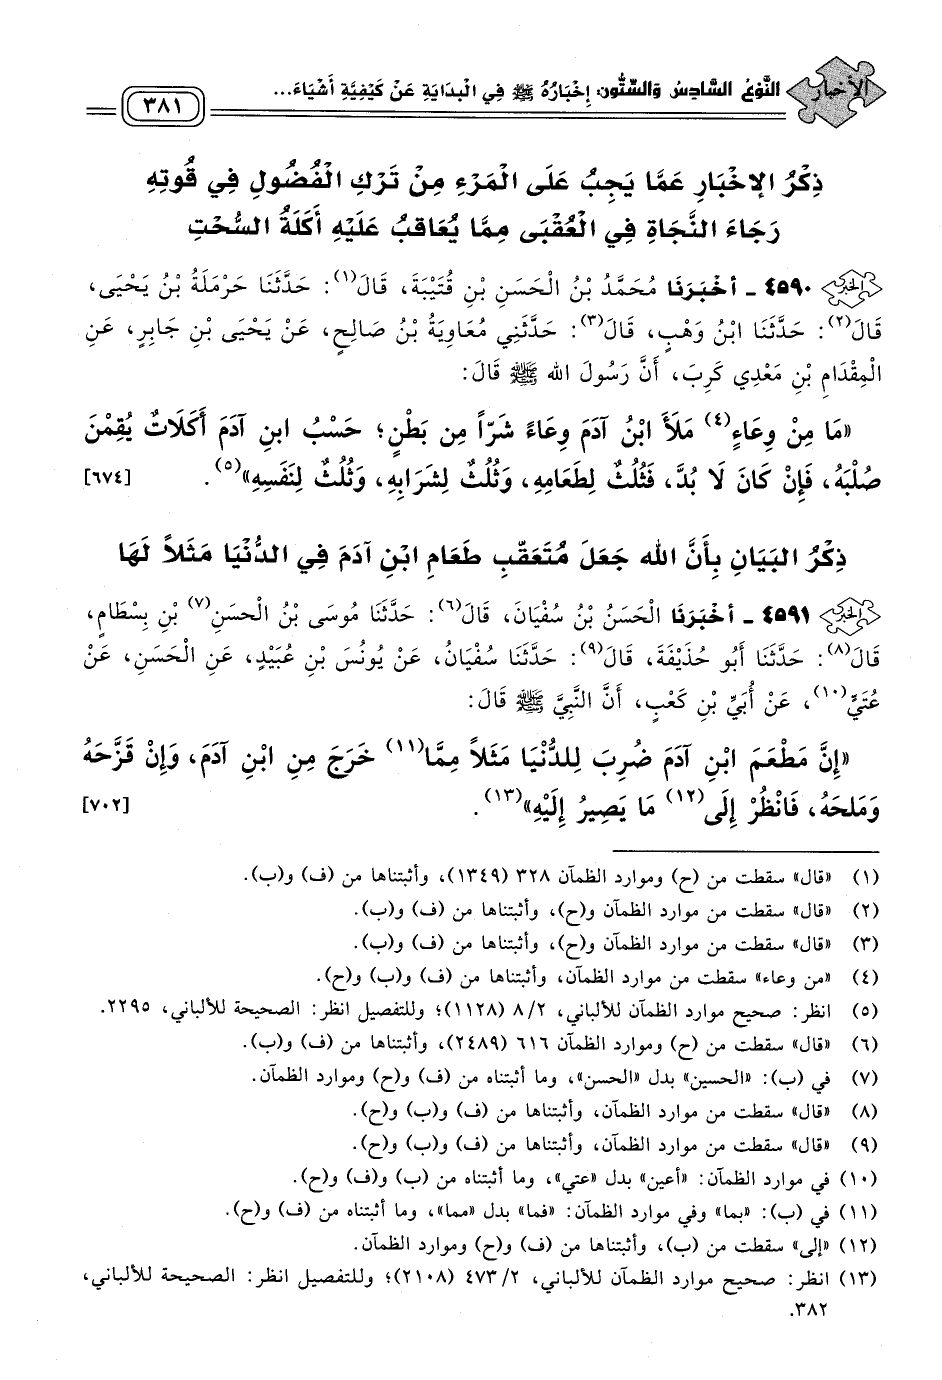 الأخبار
النَّوْعُ السَّادِسُ وَالسِّتُّونَ: إِخْبَارُهُ ﷺ فِي الْبَدَايَةِ عَنْ كَيْفِيَّةِ أَشْيَاءَ...
٣٨١
ذِكْرُ الإخْبَارِ عَمَّا يَجِبُ عَلَى الْمَرْءِ مِنْ تَرْكِ الْفُضُولِ فِي قُوتِهِ
رَجَاءَ النَّجَاةِ فِي الْعُقْبَى مِمَّا يُعَاقبُ عَلَيْهِ أَكَلَةُ السُّحْتِ
٤٥٩٠ ـ أخْبَرَنَا مُحَمَّدُ بْنُ الْحَسَنِ بْنِ قُتَيْبَةَ، قَالَ(١): حَدَّثَنَا حَرْمَلَةُ بْنُ يَحْيَى،
قَالَ(٢): حَدَّثَنَا ابْنُ وَهْبٍ، قَالَ(٣): حَدَّثَنِي مُعَاوِيَةُ بْنُ صَالِحٍ، عَنْ يَحْيَى بْنِ جَابِرٍ، عَنِ
الْمِقْدَامِ بْنِ مَعْدِي كَرِبَ، أَنَّ رَسُولَ الله ﷺ قَالَ:
«مَا مِنْ وِعَاءٍ(٤) مَلَأَ ابْنُ آدَمَ وِعَاءً شَرّاً مِن بَطْنٍ؛ حَسْبُ ابنِ آدَمَ أَكَلَاتٌ يُقِمْنَ
صُلْبَهُ، فَإِنْ كَانَ لَا بُدَّ، فَثُلُثٌ لِطَعَامِهِ، وَثُلُثٌ لِشَرَابِهِ، وَثُلُثٌ لِنَفَسِهِ»(٥). [٦٧٤]
ذِكْرُ البَيَانِ بِأَنَّ الله جَعَلَ مُتَعَقّبِ طَعَامِ ابْنِ آدَمَ فِي الدُّنْيَا مَثَلاً لَهَا
٤٥٩١ ـ أخْبَرَنَا الْحَسَنُ بْنُ سُفْيَانَ، قَالَ(٦): حَدَّثَنَا مُوسَى بْنُ الْحَسَنِ(٧) بْنِ بِسْطَامٍ،
قَالَ(٨): حَدَّثَنَا أَبُو حُذَيْفَةَ، قَالَ(٩): حَدَّثَنَا سُفْيَانُ، عَنْ يُونُسَ بْنِ عُبَيْدٍ، عَنِ الْحَسَنِ، عَنْ
عُتَيٍّ(١٠)، عَنْ أُبَيِّ بْنِ كَعْبٍ، أَنَّ النَّبِيَّ ﷺ قَالَ:
«إِنَّ مَطْعَمَ ابْنِ آدَمَ ضُرِبَ لِلدُّنْيَا مَثَلاً مِمَّا(١١) خَرَجَ مِنِ ابْنِ آدَمَ، وَإِنْ قَزَّحَهُ
وَمَلحَهُ، فَانْظُرْ إِلَى(١٢) مَا يَصِيرُ إِلَيْهِ»(١٣). [٧٠٢]
(١) «قال» سقطت من (ح) وموارد الظمآن ٣٢٨ (١٣٤٩)، وأثبتناها من (ف) و(ب).
(٢) «قال» سقطت من موارد الظمآن و(ح)، وأثبتناها من (ف) و(ب).
(٣) «قال» سقطت من موارد الظمآن و(ح)، وأثبتناها من (ف) و(ب).
(٤) «من وعاء» سقطت من موارد الظمآن، وأثبتناها من (ف) و(ب) و(ح).
(٥) انظر: صحيح موارد الظمآن للألباني، ٨/٢ (١١٢٨)؛ وللتفصيل انظر: الصحيحة للألباني، ٢٢٩٥.
(٦) «قال» سقطت من (ح) وموارد الظمآن ٦١٦ (٢٤٨٩)، وأثبتناها من (ف) و(ب).
(٧) في (ب): «الحسين» بدل «الحسن»، وما أثبتناه من (ف) و(ح) وموارد الظمآن.
(٨) «قال» سقطت من موارد الظمآن، وأثبتناها من (ف) و(ب) و(ح).
(٩) «قال» سقطت من موارد الظمآن، وأثبتناها من (ف) و(ب) و(ح).
(١٠) في موارد الظمآن: «أعين» بدل «عتي»، وما أثبتناه من (ب) و(ف) و(ح).
(١١) في (ب): «بما» وفي موارد الظمآن: «فما» بدل «مما»، وما أثبتناه من (ف) و(ح).
(١٢) «إلى» سقطت من (ب)، وأثبتناها من (ف) و(ح) وموارد الظمآن.
(١٣) انظر: صحيح موارد الظمآن للألباني، ٤٧٣/٢ (٢١٠٨)؛ وللتفصيل انظر: الصحيحة للألباني،
٣٨٢.